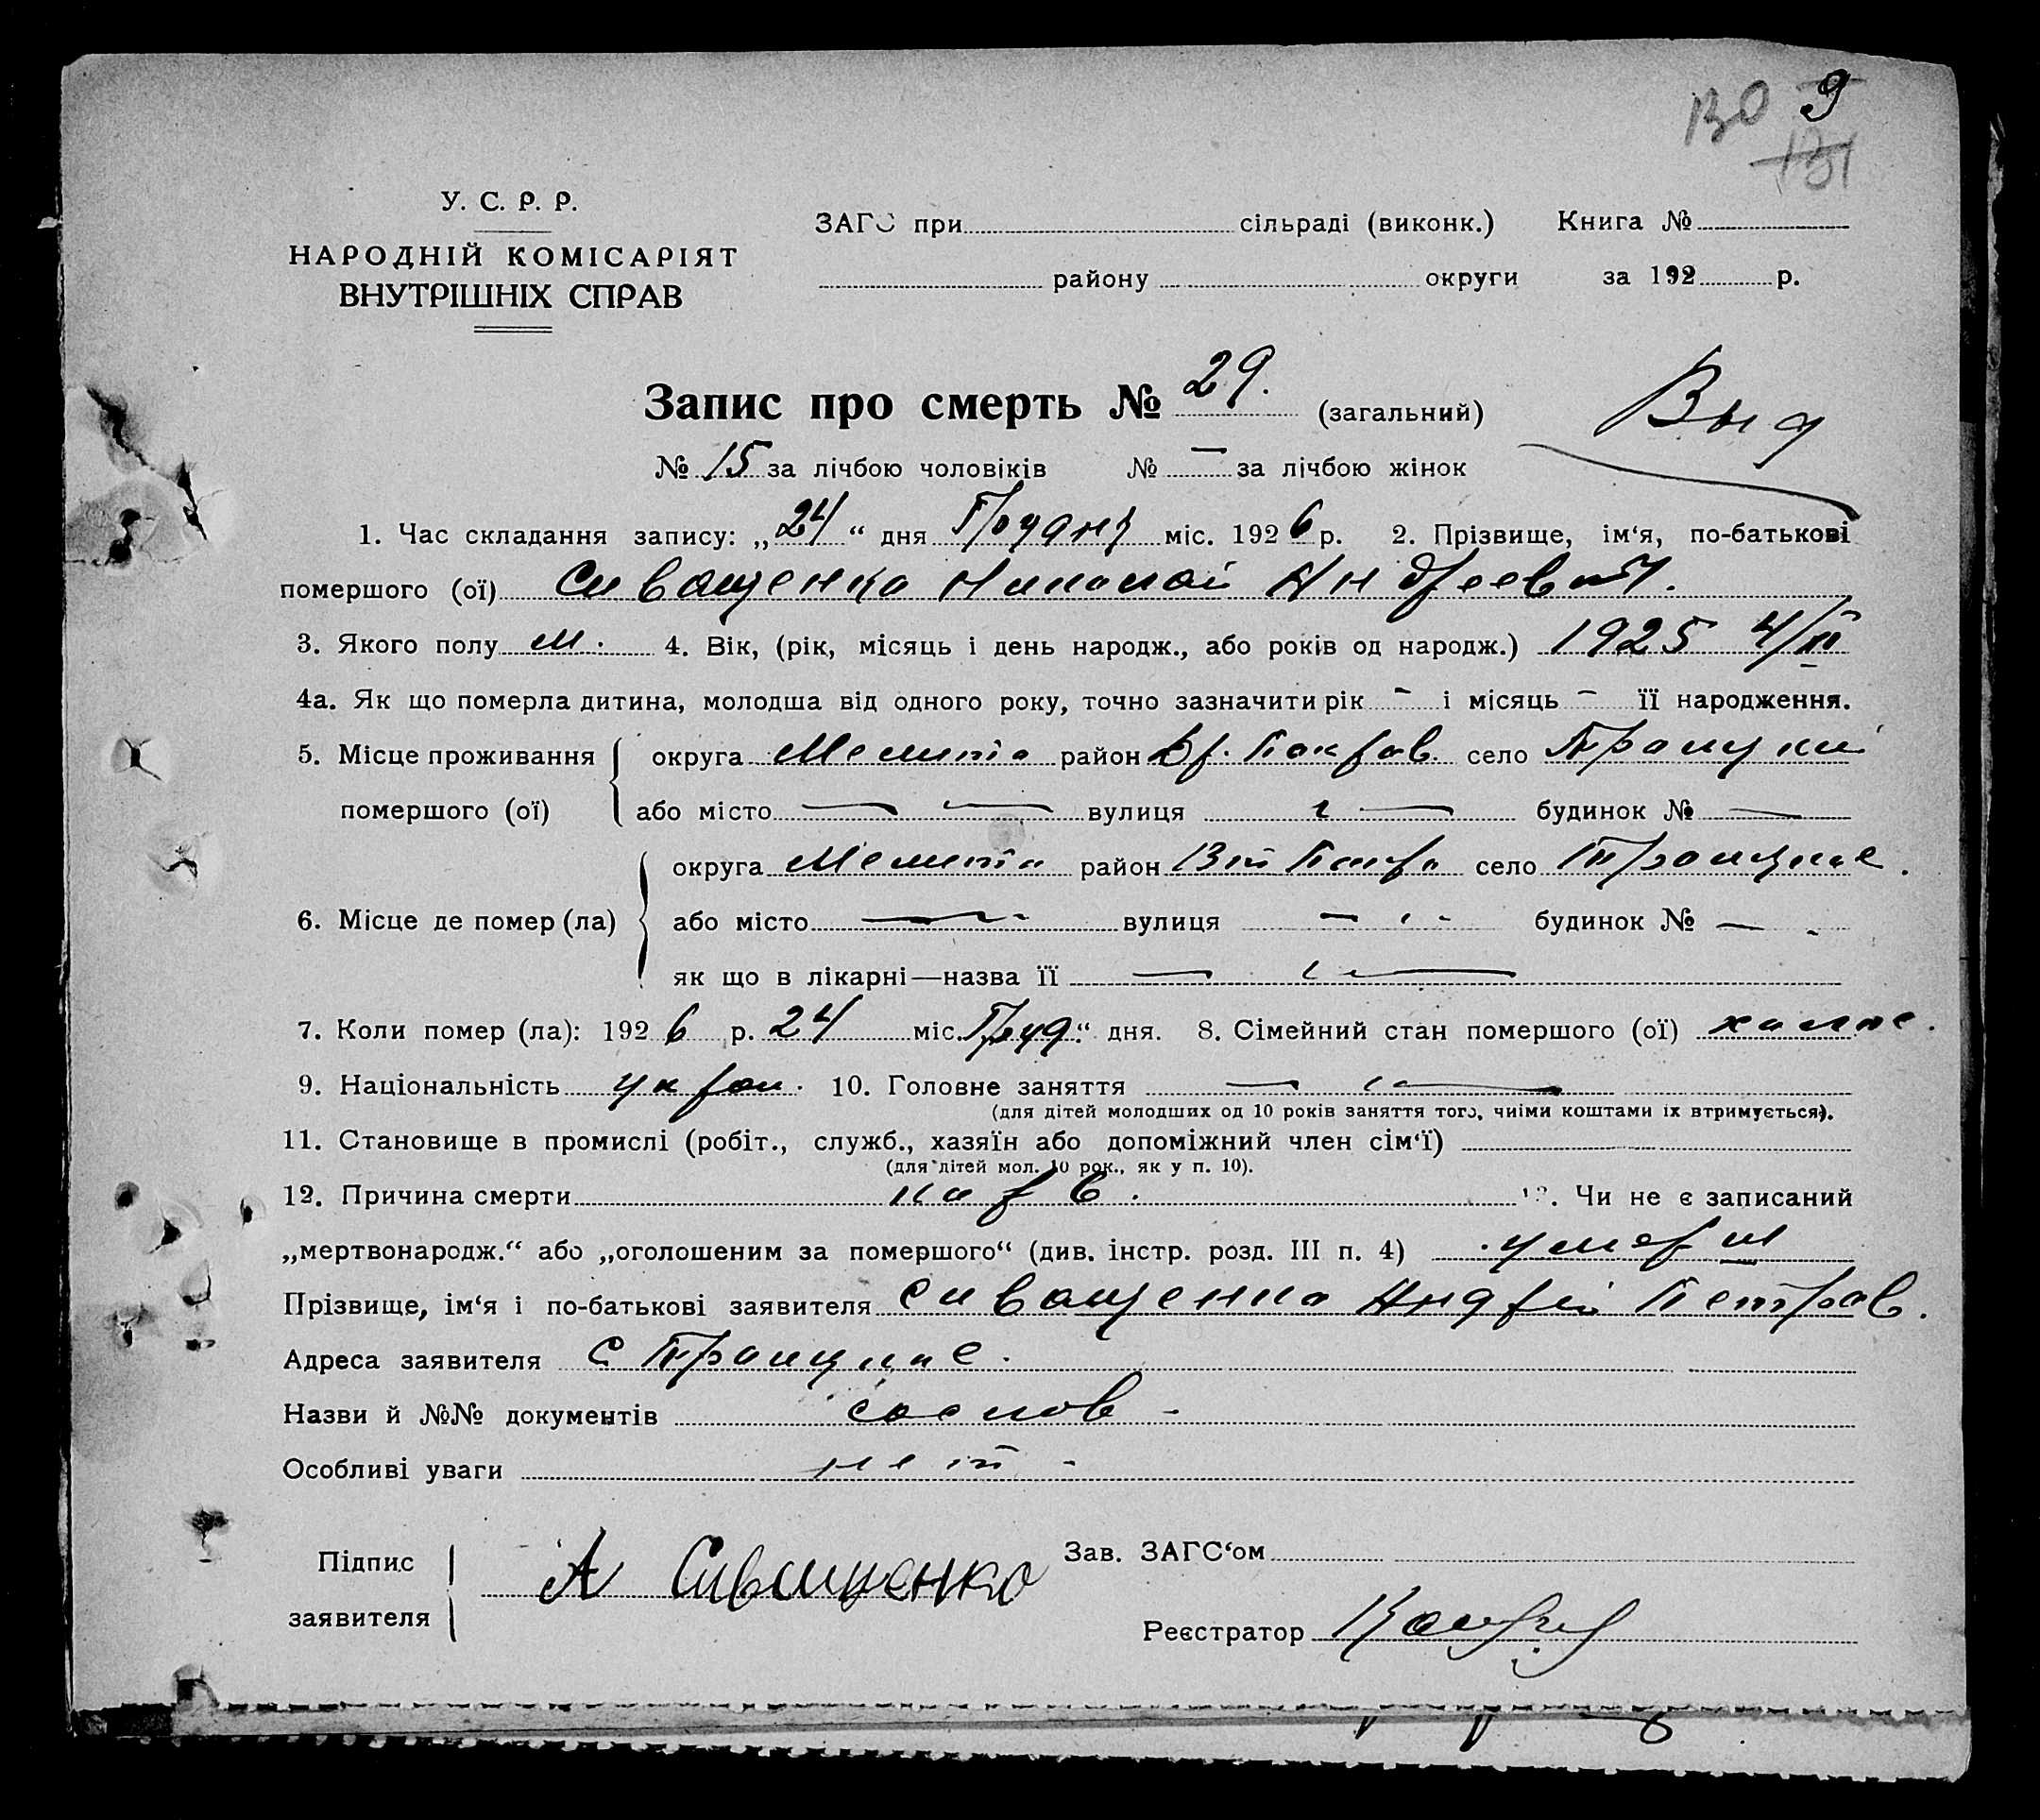 130 9
131
У. С. Р. Р.
НАРОДНІЙ КОМІСАРІЯТ
ВНУТРІШНІХ СПРАВ
ЗАГС при сільраді (виконк.) Книга №
району округи за 192 р.
Запис про смерть № 29. (загальний)
Выд
№ 15 за лічбою чоловіків № — за лічбою жінок
1. Час складання запису: „24“ дня Грудня міс. 1926 р. 2. Прізвище, ім‘я, по-батькові
помершого (ої) Сиващенко Николай Андреевич.
3. Якого полу м. 4. Вік, (рік, місяць і день народж., або років од народж.) 1925 4/II
4а. Як що померла дитина, молодша від одного року, точно зазначити рік - і місяць - її народження.
5. Місце проживання округа Мелито район Вт. Покров. село Троицкий
помершого (ої) або місто — — вулиця — будинок № —
округа Мелито район Вт Покро село Троицкое.
6. Місце де помер (ла) або місто — вулиця — будинок № —
як що в лікарні—назва її — —
7. Коли помер (ла): 1926 р. 24 міс. Груд.“ дня. 8. Сімейний стан помершого (ої) холос.
9. Національність украи. 10. Головне заняття — —
(для дітей молодших од 10 років заняття того, чиїми коштами їх втримується).
11. Становище в промислі (робіт., служб., хазяїн або допоміжний член сім‘ї)
(для дітей мол. 10 рок., як у п. 10).
12. Причина смерти 13. Чи не є записаний
„мертвонародж.“ або „оголошеним за помершого“ (див. інстр. розд. III п. 4) умерш
Прізвище, ім‘я і по-батькові заявителя Сиващенко Андрей Петров.
Адреса заявителя С Троицкое.
Назви й №№ документів со слов -
Особливі уваги нет -
Підпис
заявителя
А Сиващенко
Зав. ЗАГС‘ом
Реєстратор